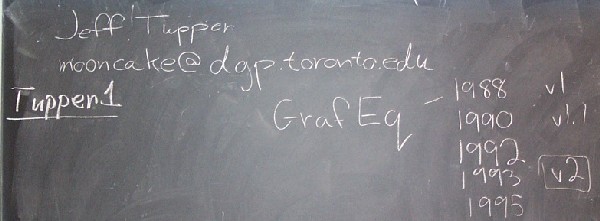 Jeff Tupper
mooncake@dgp.toronto.edu
Tupper.1
GrafEq
1988 v1
1990 v1.1
1992
1993 v2
1995